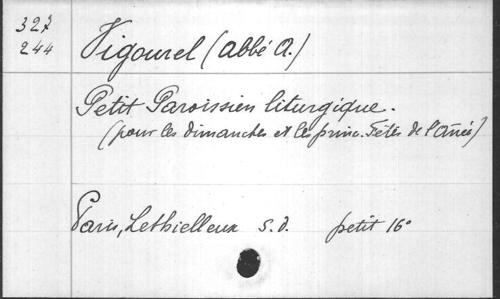 327
244
Vigourel (abbé A.)
Petit Paroissien liturgique.
(pour les dimanches et les princ. Fêtes de l'Année)
Paris, Lethielleux s.d. petit 16°